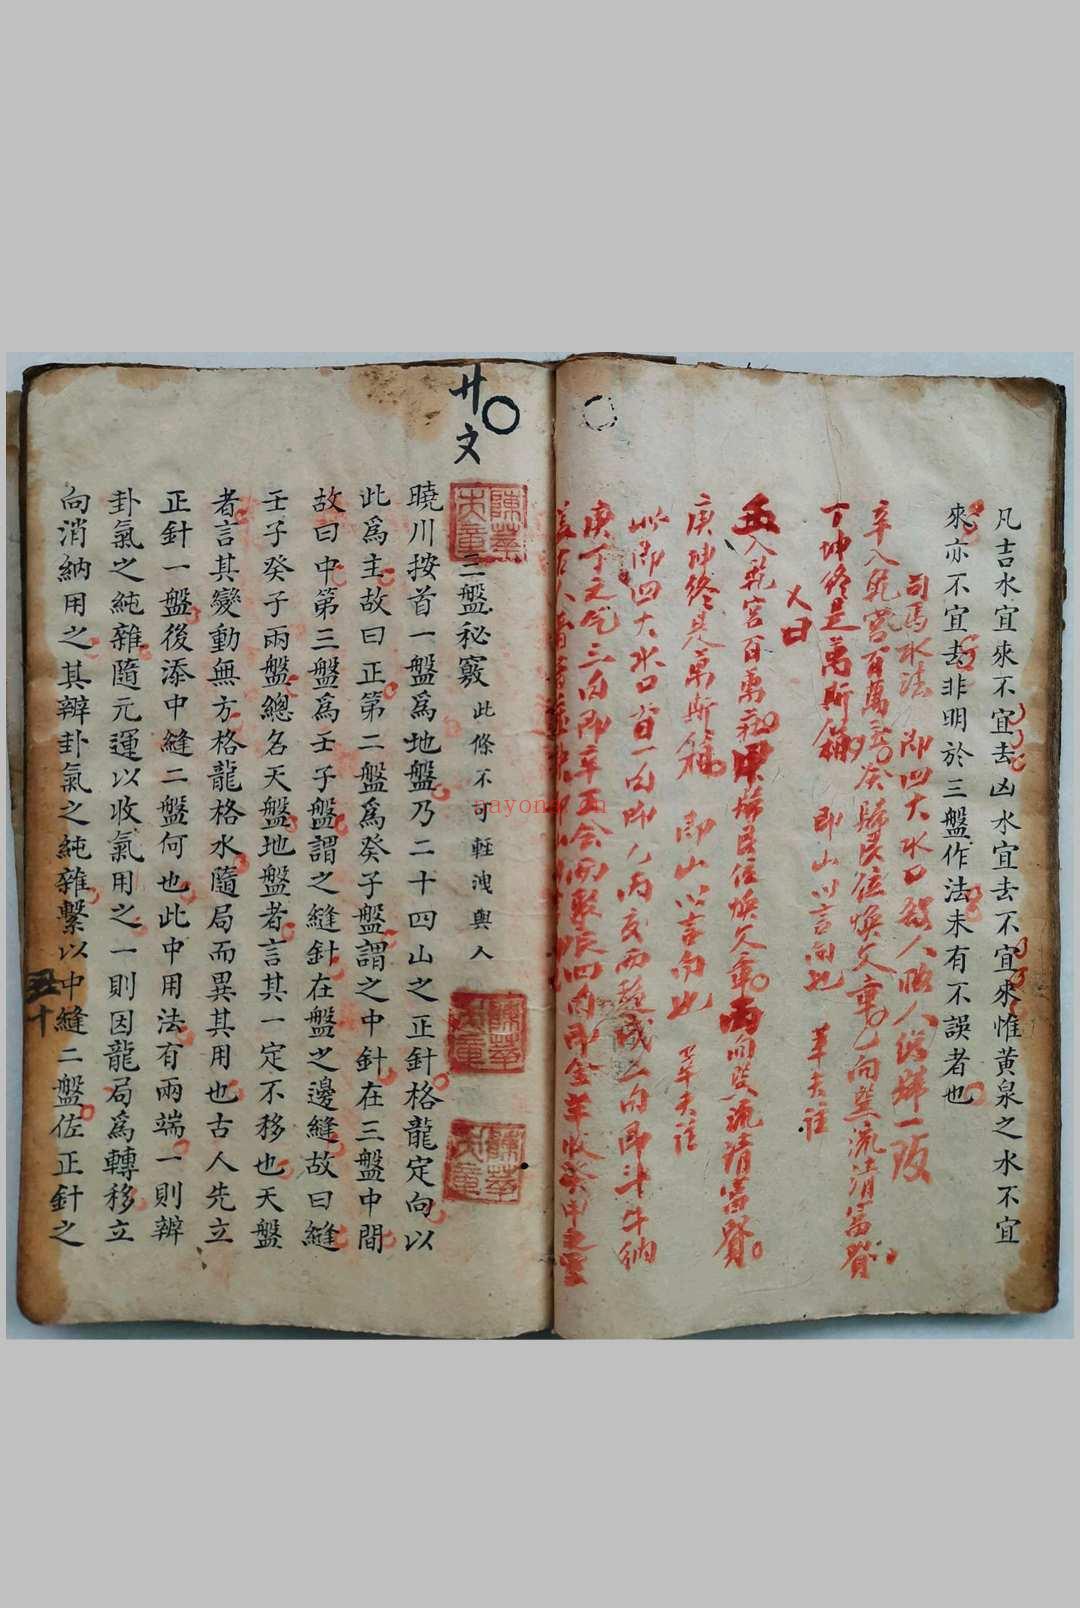 凡吉水宜來不宜去凶水宜去不宜來惟黃泉之水不宜
來亦不宜去非明於三盤作法未有不誤者也
司馬水法 即四大水口
辛入乾宮百萬庄癸歸艮位煥文章乙向巽流清富貴
丁坤終是萬斯箱 即山以言向也 羊夫註
又曰
壬入乾宮百萬庄甲歸艮位煥文章丙向巽流清富貴
庚坤終是萬斯箱 即山以言向也 羊夫註
此即四大水口首一句即乙丙交而趨戌二句即斗牛納
庚丁之气三句即辛壬会而聚辰四句即金羊收癸甲之靈
三盤秘竅 此條不可輕洩與人
曉川按首一盤爲地盤乃二十四山之正針格龍定向以
此爲主故曰正第二盤爲癸子盤謂之中針在三盤中間
故曰中第三盤爲壬子盤謂之縫針在盤之邊縫故曰縫
壬子癸子兩盤總名天盤地盤者言其一定不移也天盤
者言其變動無方格龍格水隨局而異其用也古人先立
正針一盤後添中縫二盤何也此中用法有兩端一則辨
卦氣之純雜隨元運以收氣用之一則因龍局爲轉移立
向消納用之其辨卦氣之純雜繫以中縫二盤佐正針之
廿
文
五十